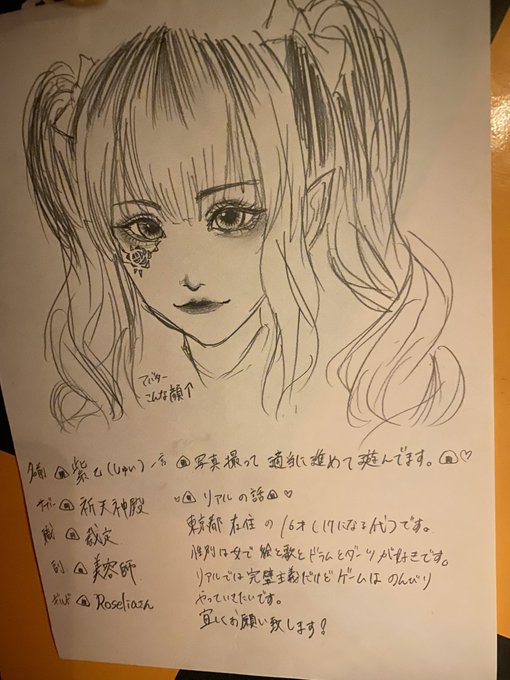 アバター
こんな顔↑
名前 紫乙(しゅい)
祈天神殿
職 裁定
副 美容師
ギルド Roseliaさん
写真撮って適当に進めて遊んでます。♡
リアルの話♡
東京都在住の16才(17になる代)です。
性別は女で絵と歌とドラムとダーツが好きです。
リアルでは完璧主義だけどゲームはのんびり
やっていきたいです。
宜しくお願い致します!